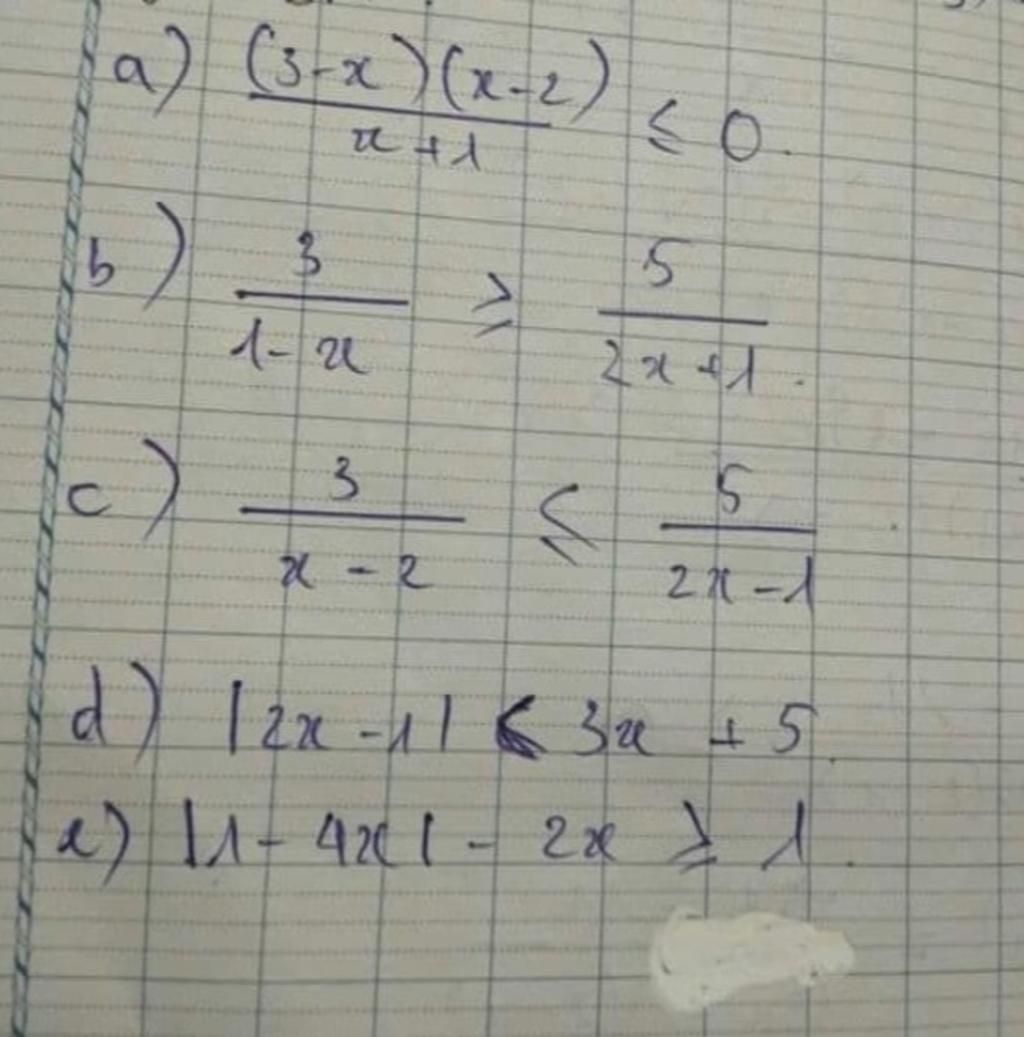 a) (3-x)(x-2) / x+1 ≤ 0.
b) 3 / 1-x ≥ 5 / 2x+1.
c) 3 / x-2 ≤ 5 / 2x-1
d) |2x-1| < 3x + 5.
e) |1-4x| - 2x ≥ 1.